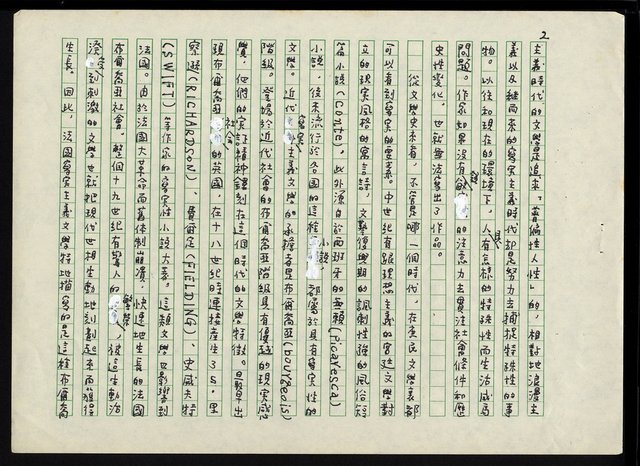 2
主義時代的文學是追求「普遍性人性」的，相對地浪漫主
義以及繼而來的寫實主義時代却是努力去捕捉特殊性的事
物。以往和現在的環境下，人有怎樣的特殊性而生活成為
問題。作家如果沒有敏銳的注意力去貫注社會條件和歷
史性變化，也就無法寫出了作品。
從文學史來看，不管是哪一個時代，在庶民文學裏都
可以看到寫實的要素。中世紀有跟理想主義的宮廷文學對
立的現實風格的寓言詩，文藝復興期的諷刺性強的風俗短
篇小說(conto)，此外源自於西班牙的無賴(Picaresca)
小說，後來流行於各國的這種小說，都屬於具有寫實性的
文學。近代寫實主義文學的承擔者是布爾喬亞(bourgeois)
階級。登場於近代社會的布爾喬亞階級具有優越的現實感
覺，他們的實証精神鏤刻在這個時代的文學特徵。最早出
現布爾喬亞社會的英國，在十八世紀時連接產生了S.里
察遜(RICHARDSON)、費爾定(FIELDING)、史威夫特
(SWIFT)等作家的寫實性小說大表。這類文學也影響到
法國。由於法國大革命而舊体制崩潰，快速地生長的法國
布爾喬亞社會。整個十九世紀有驚人的繁榮，被這生動活
潑刺激的文學也就把現代世相生動地刻劃起來而獲得
生長。因此，法國寫實主義文學特地描寫的是這種布爾喬